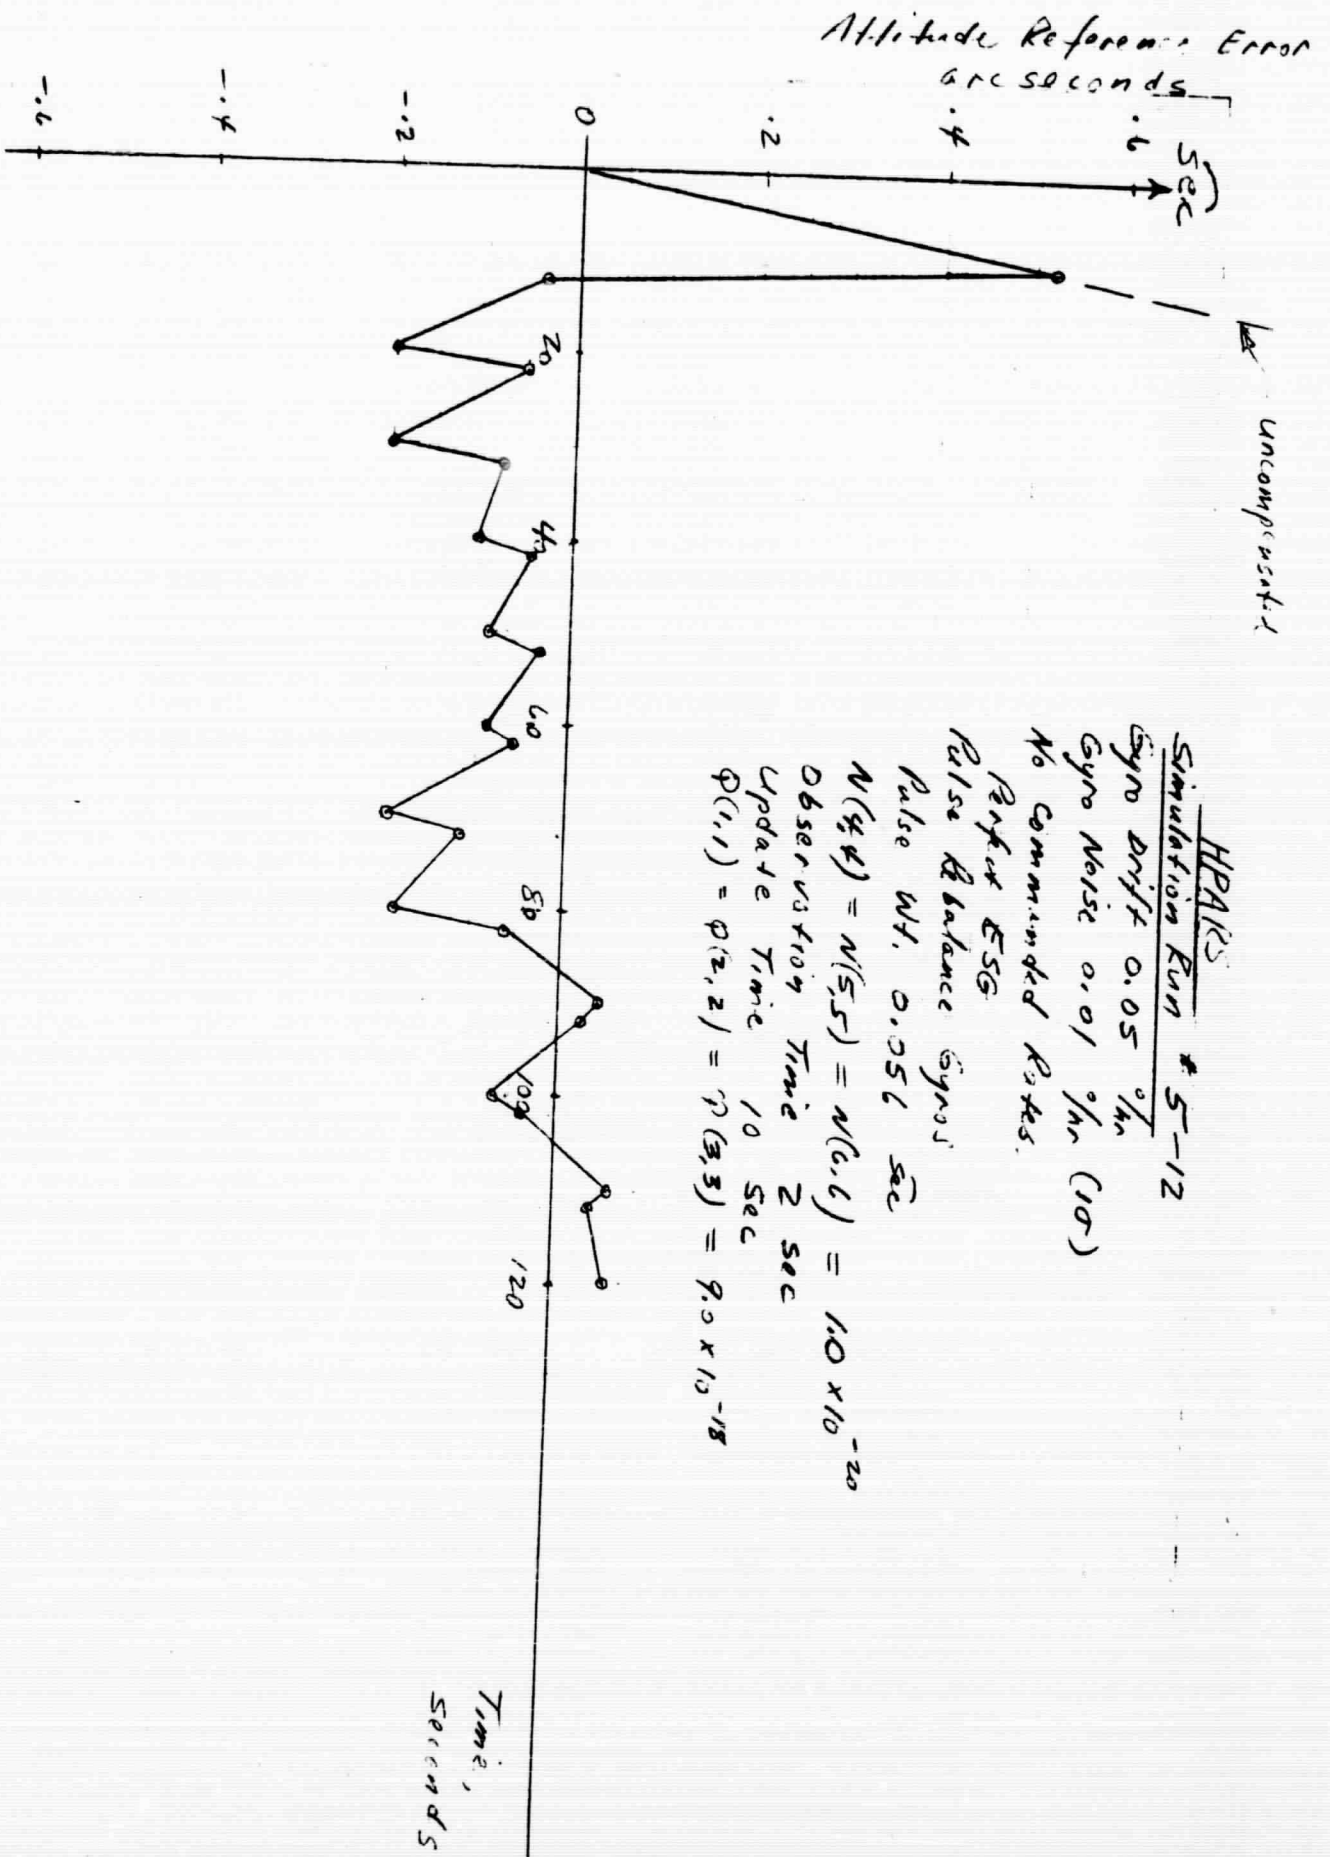 Attitude Reference Error
arc seconds
Sec
.6
.4
.2
0
-.2
-.4
-.6
20
40
60
80
100
120
Time,
seconds
HPARS
Simulation Run # 5-12
Gyro Drift 0.05 °/hr
Gyro Noise 0.01 °/hr (1σ)
No Commanded Rates.
Perfect ESG
Pulse Rebalance Gyros
Pulse Wt. 0.056 sec
N(4,4) = N(5,5) = N(6,6) = 1.0 x 10^-20
Observation Time 2 sec
Update Time 10 Sec
P(1,1) = P(2,2) = P(3,3) = 9.0 x 10^-18